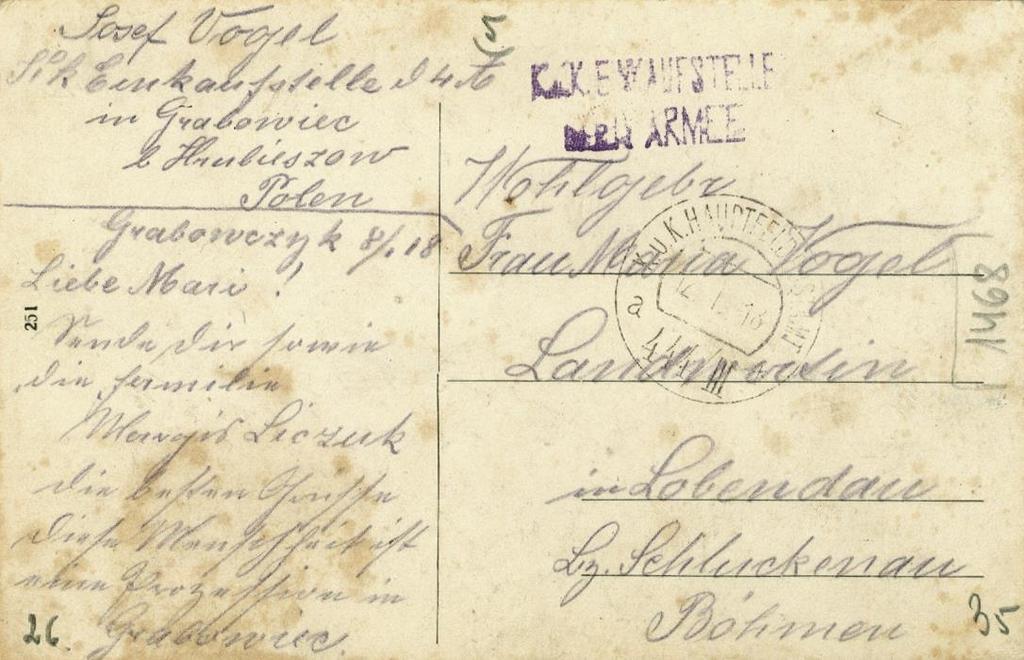 Josef Vogel
K.u.K Einkaufstelle d 4. A
in Grabowiec
b Hrubieszow
Polen
Grabowczyk 8/1. 18
Liebe Mari !
Sende dir sowie
die familie
Liczuk
die besten Grüsse
Diese Menschheit ist
eine Prozession in
Grabowiec.
26.
251
5
K.u.K. EINKAUFSTELLE
ARMEE
Wohlgebr
Frau Maria Vogel
Landwirtin
in Lobendau
Bz. Schluckenau
Böhmen
K.U.K. HAUPTFELDPOSTAMT
a
12. I. 18
III
1468
35